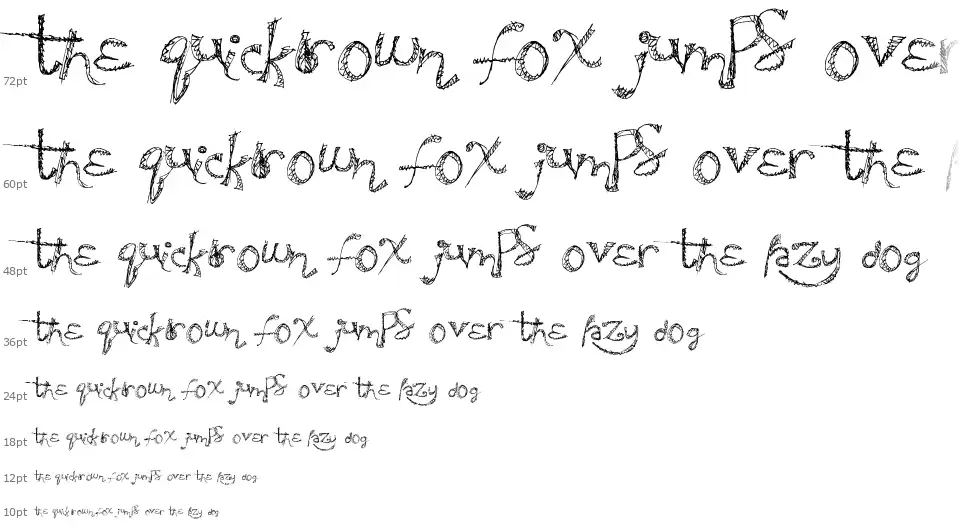 72pt the quickbrown fox jumps over
60pt the quickbrown fox jumps over the
48pt the quickbrown fox jumps over the lazy dog
36pt the quickbrown fox jumps over the lazy dog
24pt the quickbrown fox jumps over the lazy dog
18pt the quickbrown fox jumps over the lazy dog
12pt the quickbrown fox jumps over the lazy dog
10pt the quickbrown fox jumps over the lazy dog